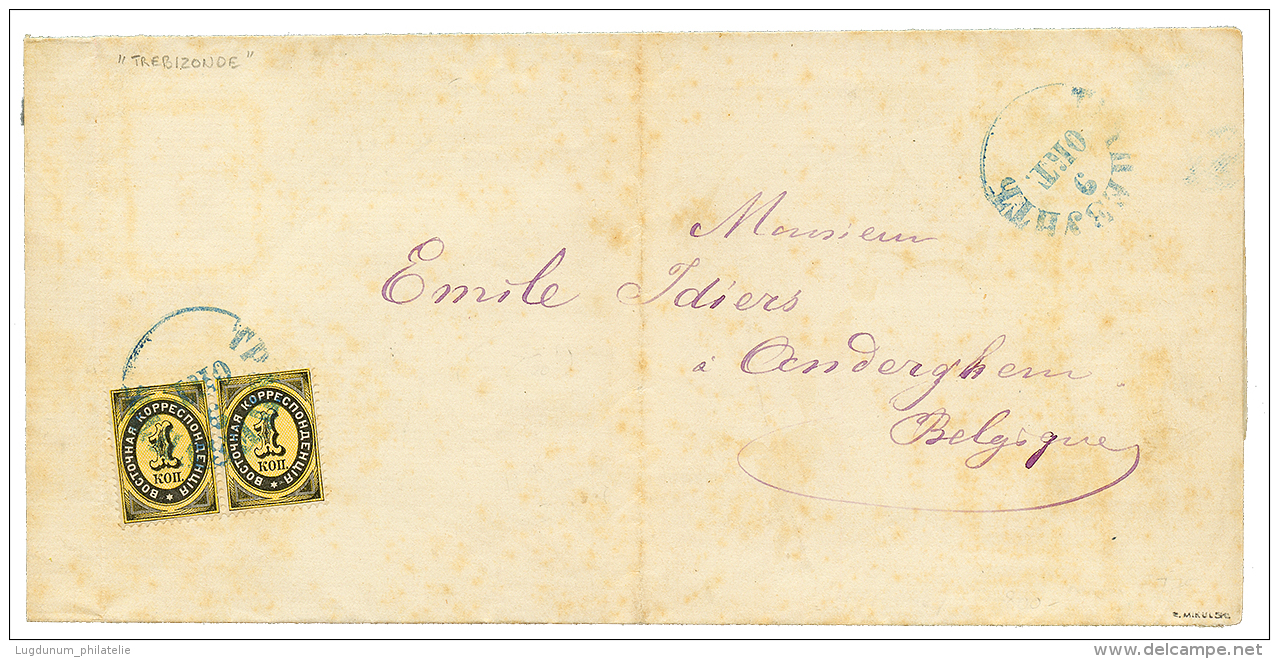 "TREBIZONDE"
ТРАПЕЗУНТЪ
9
ОКТ
Monsieur
Emile Idiers
à Anderghem
Belgique
ТР
ОКТ
ВОСТОЧНАЯ КОРРЕСПОНДЕНЦІЯ
1
КОП.
ВОСТОЧНАЯ КОРРЕСПОНДЕНЦІЯ
1
КОП.
Z. MIKULSKI
Lugdunum_philatelie
delcampe.net